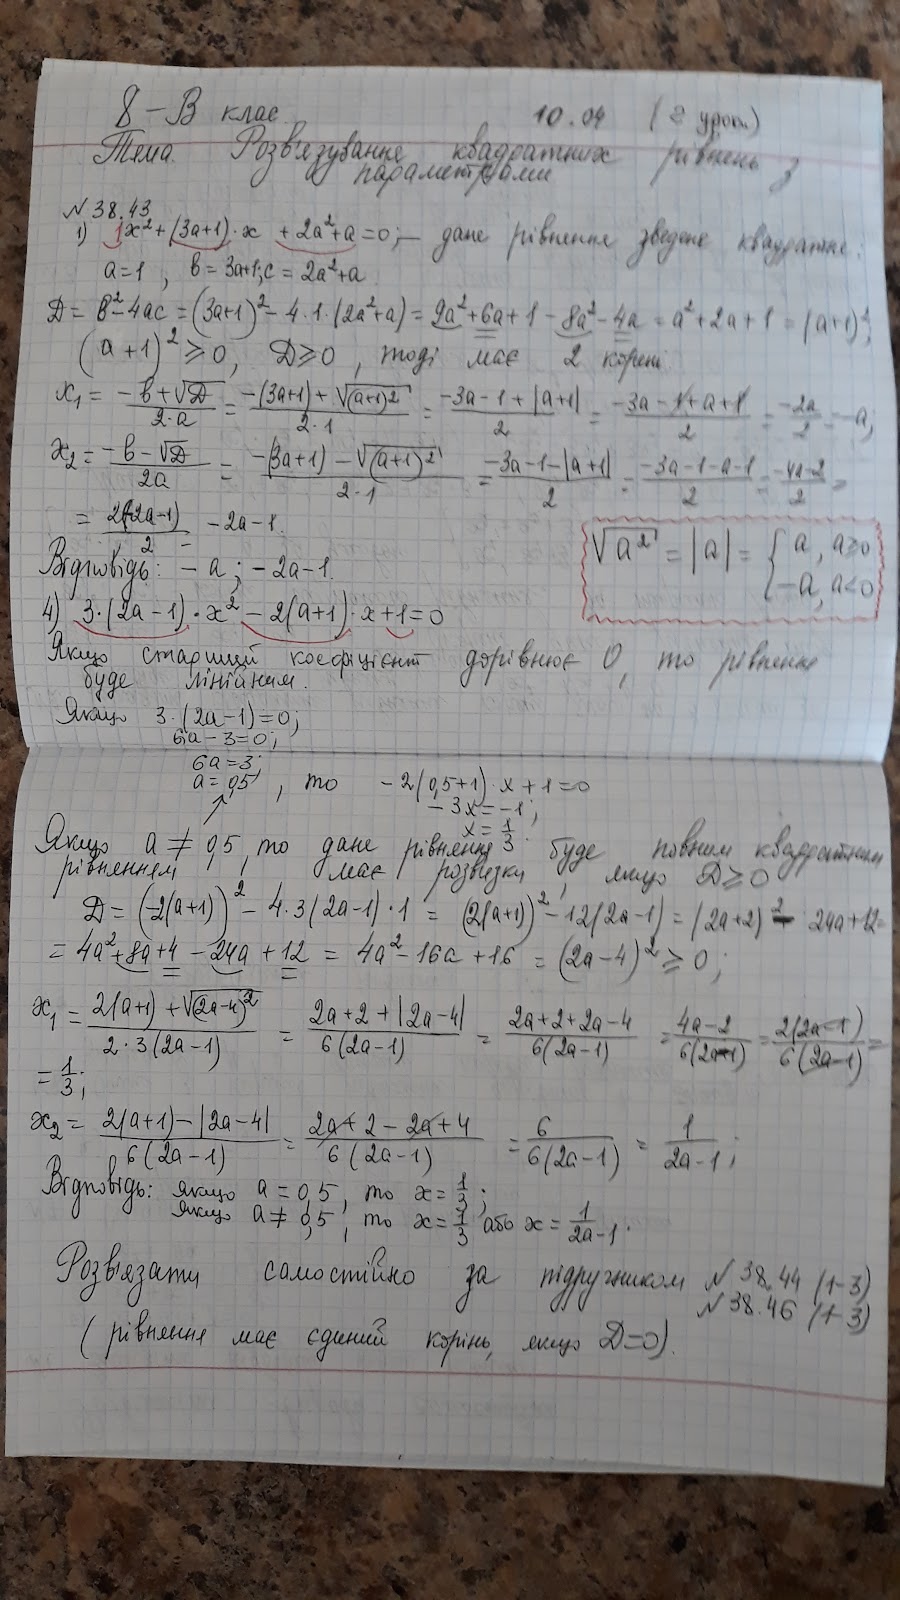 8 – В клас 10.04 (2 урок)
Тема. Розв'язування квадратних рівнень з
параметрами
№ 38.43
1) 1x² + (3a+1)·x + 2a²+a = 0; – дане рівнення зведене квадратне.
a=1, в = 3a+1; c = 2a²+a
D = в² - 4ac = (3a+1)² - 4·1·(2a²+a) = 9a² + 6a + 1 - 8a² - 4a = a² + 2a + 1 = (a+1)²;
(a+1)² ⩾ 0, D ⩾ 0, тоді має 2 корені
x₁ = (-в+√D)/(2·a) = (-(3a+1)+√(a+1)²)/(2·1) = (-3a-1+|a+1|)/2 = (-3a-1+a+1)/2 = (-2a)/2 = -a;
x₂ = (-в-√D)/(2a) = (-(3a+1)-√(a+1)²)/(2·1) = (-3a-1-|a+1|)/2 = (-3a-1-a-1)/2 = (-4a-2)/2 =
= 2(-2a-1)/2 = -2a-1.
√a² = |a| = { a, a⩾0
-a, a<0
Відповідь: -a; -2a-1.
4) 3·(2a-1)·x² - 2(a+1)·x + 1 = 0
Якщо старший коефіцієнт дорівнює 0, то рівнення
буде лінійним.
Якщо 3·(2a-1)=0;
6a-3=0;
6a=3;
a=0,5, то -2(0,5+1)·x+1=0
-3x=-1;
x=1/3
Якщо a ≠ 0,5, то дане рівнення буде повним квадратним
рівненням, має розв'язки, якщо D⩾0
D = (-2(a+1))² - 4·3(2a-1)·1 = (2(a+1))² - 12(2a-1) = (2a+2)² - 24a+12=
= 4a²+8a+4 - 24a + 12 = 4a² - 16a + 16 = (2a-4)² ⩾ 0;
x₁ = (2(a+1)+√(2a-4)²)/(2·3(2a-1)) = (2a+2+|2a-4|)/(6(2a-1)) = (2a+2+2a-4)/(6(2a-1)) = (4a-2)/(6(2a-1)) = 2(2a-1)/(6(2a-1)) =
= 1/3;
x₂ = (2(a+1)-|2a-4|)/(6(2a-1)) = (2a+2-2a+4)/(6(2a-1)) = 6/(6(2a-1)) = 1/(2a-1);
Відповідь: якщо a = 0,5, то x = 1/3;
якщо a ≠ 0,5, то x = 1/3 або x = 1/(2a-1).
Розв'язати самостійно за підручником № 38.44 (1-3)
№ 38.46 (1-3)
(рівнення має єдиний корінь, якщо D=0).